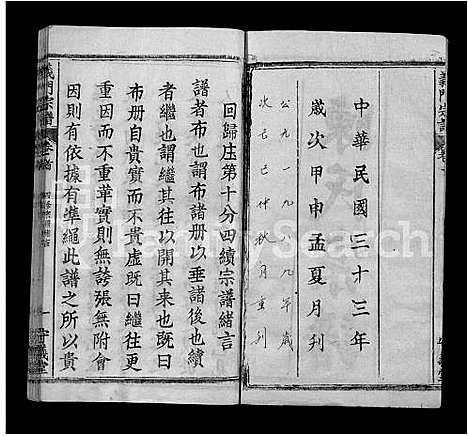 義門宗譜
中華民國三十三年
歲次甲申孟夏月刋
公元一九八九年歲
次己巳仲秋月重刋
回歸庄第十分四續宗譜緒言
譜者布也謂布諸册以垂諸後也續
者繼也謂繼其往以開其來也既曰
布册自貴實而不貴虛既曰繼往更
重因而不重華實則無誇張無附會
因則有依據有準繩此譜之所以貴
義門宗譜 卷首
一
守義堂
FamilySearch